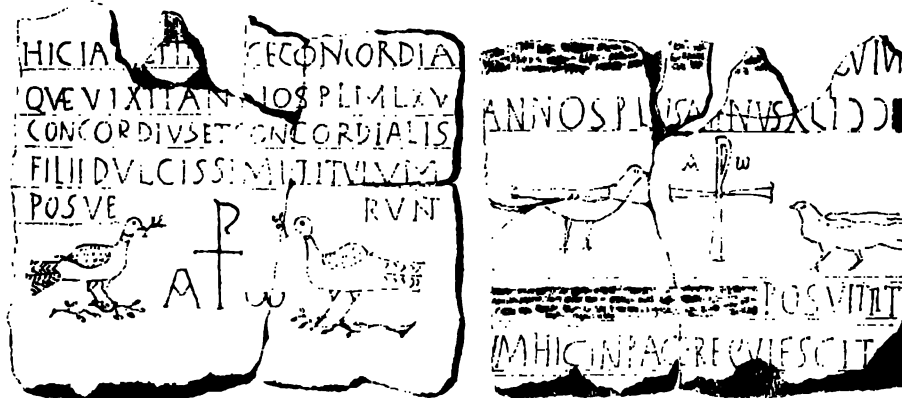 HIC IA CE CONCORDIA
QVE VIXIT ANNOS PL M LXV
CONCORDIVS ET CONCORDIALIS
FILII DVLCISSIMI TITVLVM
POSVE RVNT
A ω
ANNOS PLUS
A ω
POSVIT
HIC IN PACE REQVIESCIT